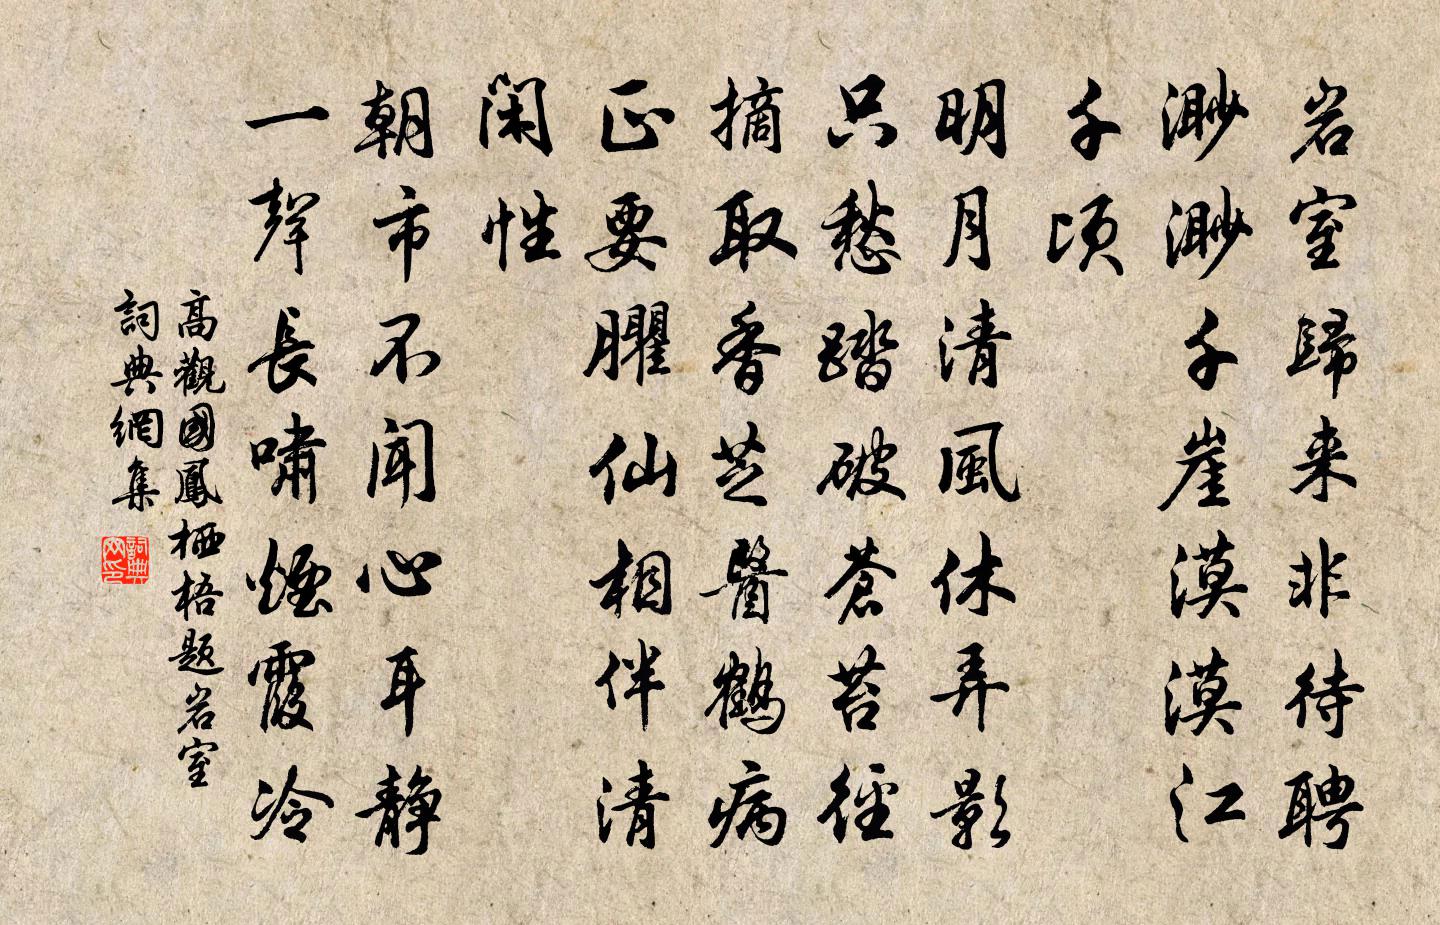 岩室歸来非待聘
渺渺千崖漠漠江
千頃
明月清風休弄影
只愁踏破蒼苔徑
摘取香芝醫鶴病
正要臞仙相伴清
閑性
朝市不聞心耳靜
一聲長嘯煙霞冷
高觀國鳳栖梧題岩室
詞典網集
詞典网印